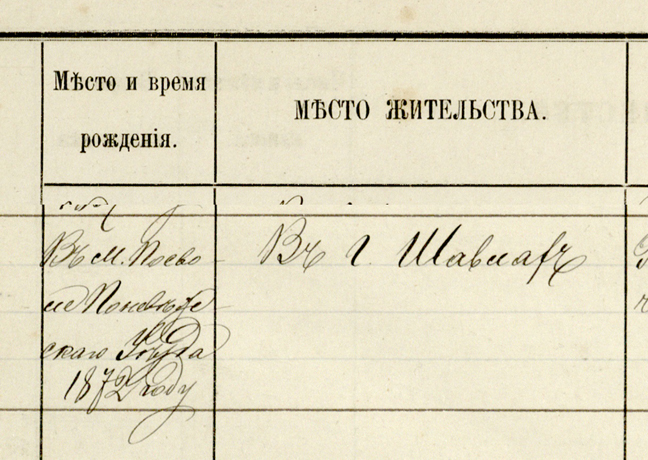 Мѣсто и время
рожденія.
МѢСТО ЖИТЕЛЬСТВА.
Въ м. Посво-
ле Поневѣже-
скаго Уѣзда
1872 году
Въ г. Шавлахъ